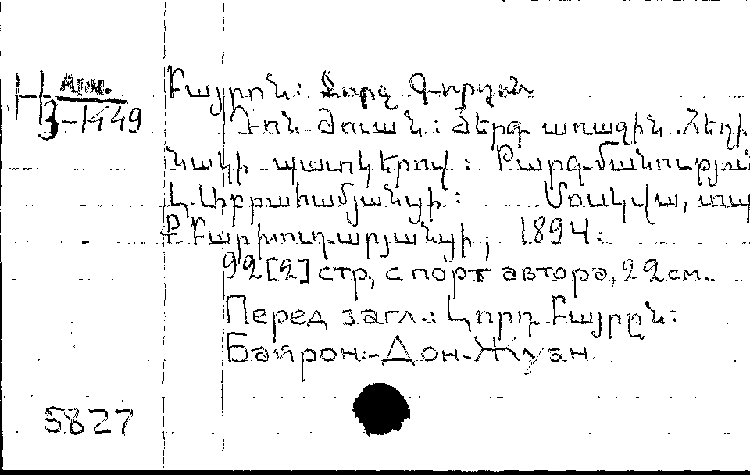 Арм.
H
3-1449
Բայրոն: Ջորջ Գորդոն
Դոն Ժուան: Երգ առաջին. Հեղի
նակի պատկերով: Թարգմանություն
Լ. Աբրահամյանցի: Մոսկվա, տպ
Բարխուդարյանցի, 1894.
92 [2] стр, с порт автора, 22 см.
Перед загл.: Լորդ Բայրըն:
Байрон:-Дон-Жуан
5827